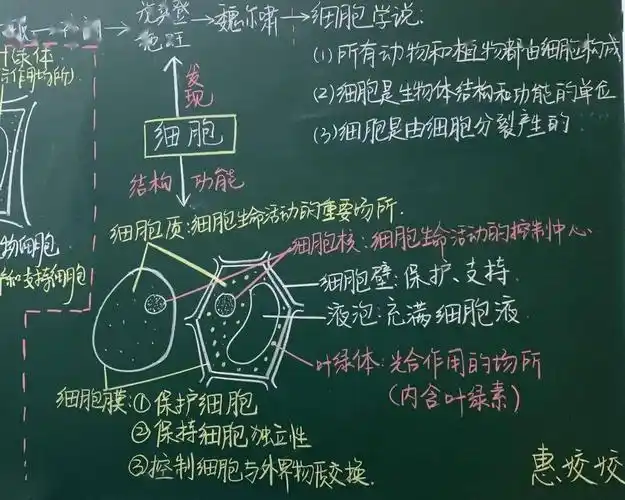 → 魏尔啸 → 细胞学说:
(1) 所有动物和植物都由细胞构成
(2) 细胞是生物体结构和功能的单位
(3) 细胞是由细胞分裂产生的
发现
细胞
结构 功能
叶绿体
作用场所)
物细胞
和支持细胞
细胞质:细胞生命活动的重要场所.
细胞核:细胞生命活动的控制中心
细胞壁:保护、支持.
液泡:充满细胞液
叶绿体:光合作用的场所
(内含叶绿素)
细胞膜:①保护细胞
②保持细胞独立性
③控制细胞与外界物质交换.
惠姣姣